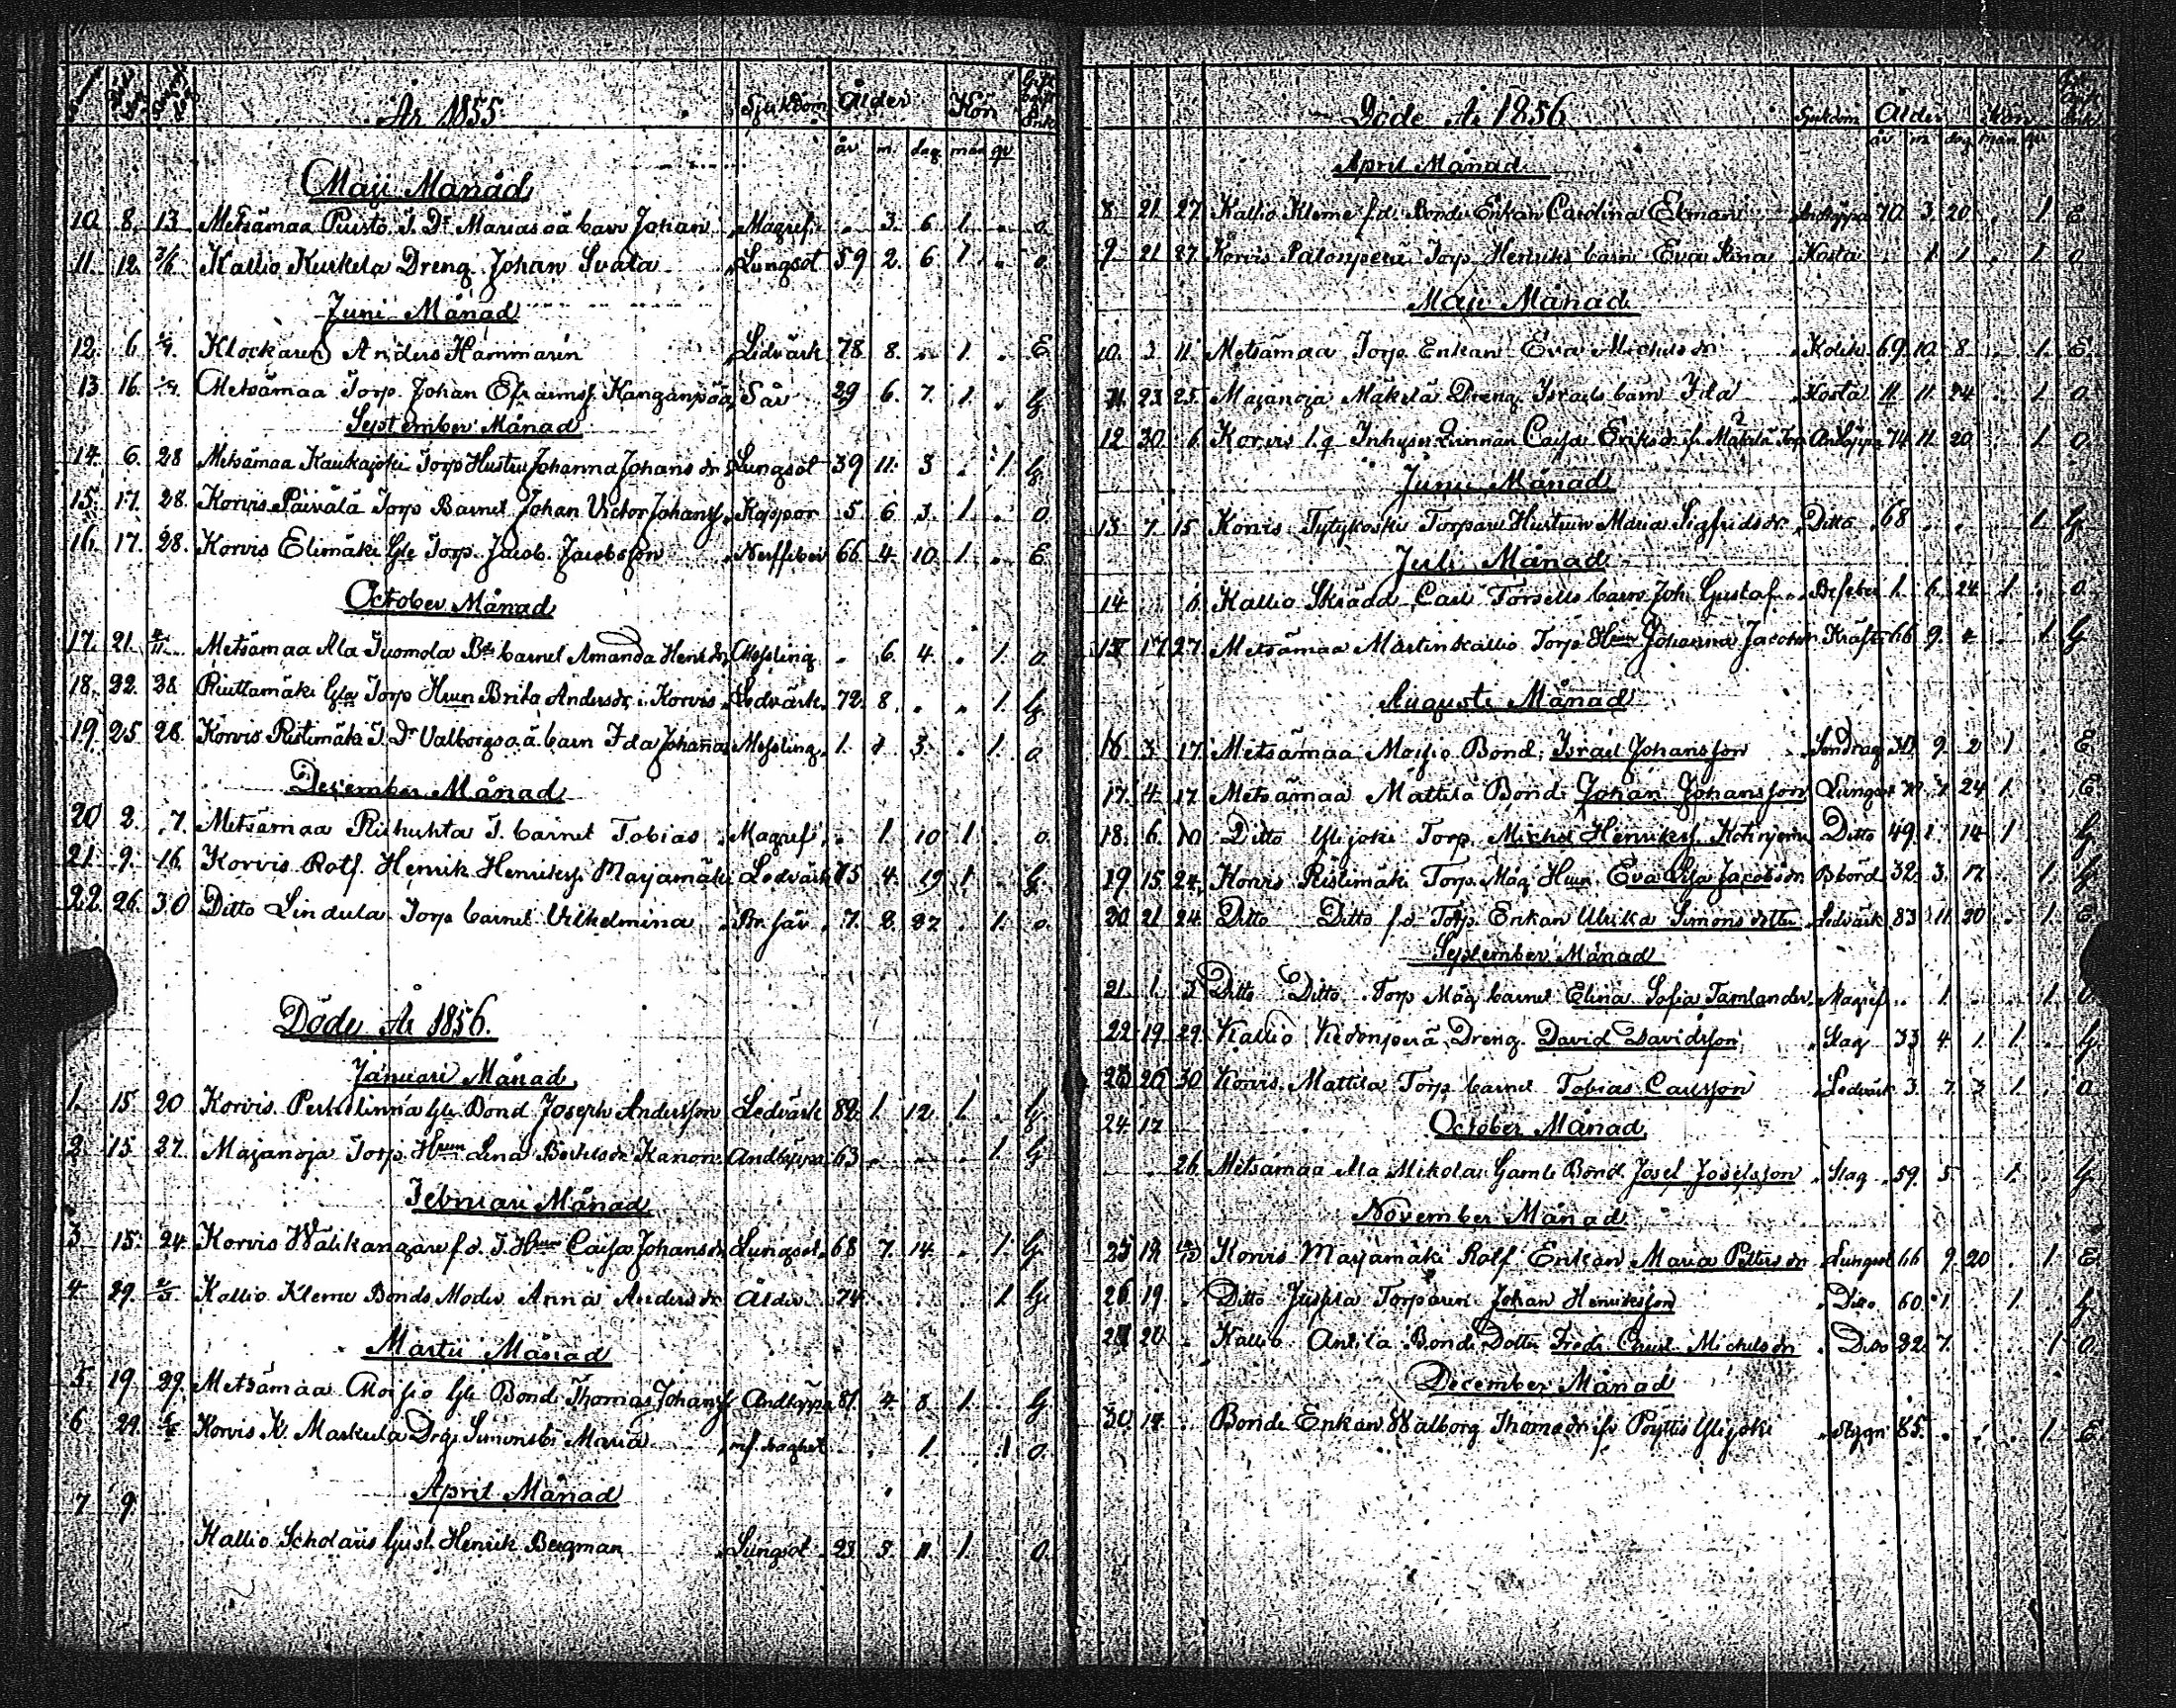 År 1855 Sjukdom Ålder Kön
år m. dag man qv
Maji Månad
10. 8. 13 Metsämaa Puisto J. Dr Marias oä barn Johan Magref. 3. 6. 1. o.
11. 12. 3/6 Kallio Kuikela Dreng Johan Svala Lungsot 59 2. 6. 1. o.
Juni Månad
12. 6 Klockaren Anders Hammarin Ledvärk 78 8. 1. E
13 16. Metsämaa Torp. Johan Efraimsf. Kanganpää Sår 29 6. 7. 1. G
September Månad
14. 6. 28 Metsämaa Kaukajoki Torp Hustru Johanna Johansdr Lungsot 39 11. 3 1. G.
15. 17. 28. Korvis Päivälä Torp Barnet Johan Victor Johansf. Koppor 5. 6 3. 1. o
16. 17. 28. Korvis Elimäki Gle Torp. Jacob Jacobsson Nerffeber 66 4. 10. 1. E
October Månad
17. 21. Metsämaa Ala Tuomola Bds barnet Amanda Henrdr Messling 6. 4. 1. o.
18. 22. 28 Riuttamäki Gla Torp Hun Brita Andersdr i Korvis Ledvärk. 72. 8. 1. G
19. 25 28. Korvis Ristimäki J. Dr Valborgs o.ä. barn Ida Johanna Messling. 1. 3. 1. o
December Månad
20 2. 7. Metsämaa Riihuhta T. barnet Tobias Magref. 1. 10 1. o.
21. 9. 16. Korvis Rotf. Henrik Henriksf. Marjamäki Ledvärk 75 4. 19 1. G.
22. 26. 30 Ditto Lindula Torp barnet Vilhelmina Br. sår 7. 8. 1. o.
Döde År 1856.
Januari Månad
1. 15 20 Korvis Perkolinna Gle Bond Joseph Andersson Ledvärk 82. 1. 12. 1. G
2. 15 27. Majanoja Torp. Hun Lena Bertilsdr Kanon Andtäppa 63 1. G
Februari Månad
3 15. 24. Korvis Wälikangare f.d. T. Hun Caisa Johansdr Lungsot. 68 7. 14. 1. G.
4. 29. Kallio Kleme Bonds Moder Anna Andersdr Ålder 74 1 G.
Martii Månad
5 19 29. Metsämaa Moisio Gle Bond Thomas Johansf. Andtäppa 81. 4. 8 1. G.
6 29. Korvis K. Markula Drgs Simons b. Maria 1. 1 o.
April Månad
7 9.
Kallio Scholaris Gust. Henrik Bergman Lungsot 23. 5 11. 1. o.
Döde År 1856 Sjukdom Ålder Kön
år m dag man qv
April Månad
8. 21. 27. Kallio Kleme f.d. Bonde Enkan Carolina Ekman Andtäppa 70. 3. 20. 1. E.
9 21 27. Korvis Palonperä Torp. Henriks barn Eva Stina Hosta 1. 1. 1. o.
Maji Månad
10. 3. 11. Metsämaa Torp. Enkan Eva Michelsdr Kolik 69. 10. 8. 1. E.
11. 23. 25. Majanoja Mäkelä Dreng Israels barn Ida Hosta 11. 11. 24 1. o.
12 30. 6. Korvis Inhyseqvinnan Caisa Eriksdr fr. Mäkelä Torp Andtäppa 74. 11. 20. 1. o.
Junii Månad
13 7. 15 Korvis Tytykoski Torpare Hustrun Maria Sigfridsdr Ditto 68 1. G.
Juli Månad
14 6. Kallio Skrädd. Carl Forsells barn Joh. Gustaf Brfeber 1. 6. 24. 1. o.
15 17 27. Metsämaa Martinkallio Torp. Hun Johanna Jacobsdr Kräfta 66 9. 4 1. G
Augusti Månad
16 3. 17. Metsämaa Moisio Bond. Israel Johansson Sendrag 30 9. 2 1 E.
17. 4. 17 Metsämaa Mattila Bonde Johan Johansson Lungsot 24 1. E.
18. 6. 10 Ditto Ylijoki Torp. Michel Henriksf. Ditto 49 1 14 1 G
19 15. 24. Korvis Ristimäki Torp. Måg Hun Eva Lisa Jacobsdr Bbörd 32. 3. 17. 1. G
20 21 24. Ditto Ditto f.d. Torp. Enkan Ulrika Simonsdotter Ledvärk 83 11 20 1. E.
September Månad
21 1. 3 Ditto Ditto Torp Måg barnet Elina Sofia Tamlander Magref. 1. 1. o.
22. 19. 29. Kallio Kedonperä Dreng David Davidsson Slag 33 4. 1. 1. G
23 26 30 Korvis Mattila Torp. barnet Tobias Carlsson Ledvärk 3. 7 3 1. o.
24 17 October Månad
26. Metsämaa Ala Mikola Gamle Bond. Josef Josefsson Slag 59. 5 1. G.
November Månad
25 12 Korvis Marjamäki Rotf. Enkan Maria Pettersdr Lungsot 66 9 20 1. E
26 19. Ditto Jussila Torparen Johan Henriksson Ditto 60. 1 1. G
20 Kallio Antila Bonde Dotter Fredr. Christ. Michelsdr Ditto 82. 7. 1 o.
December Månad
30. 14. Bonde Enkan Walborg Thomsdr ifr. Pöytis Ylijoki Stygn 85. 1. E.